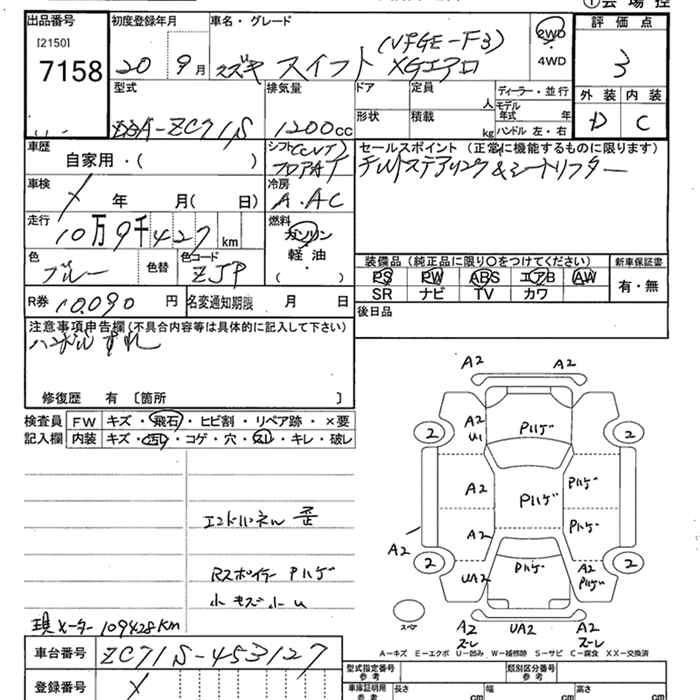 ①会場控
出品番号
[2150]
7158
初度登録年月
20 9月
車名・グレード
スズキ スイフト (VPGE-F3) XGエアロ
2WD
4WD
評価点
3
外装 内装
D C
型式
DBA-ZC71S
排気量
1200cc
ドア
定員
人
ディーラー・並行
モデル年式 年
形状
積載
kg
ハンドル 左・右
車歴
自家用・( )
シフト(CVT)
フロアAT
セールスポイント (正常に機能するものに限ります)
チルトステアリング&シートリフター
車検
年 月( 日)
冷房
A.AC
走行
10万9千427km
燃料
ガソリン
軽油
・
( )
色
ブルー
色替
色コード
ZJP
装備品 (純正品に限り○をつけてください)
PS PW ABS エアB AW
SR ナビ TV カワ
新車保証書
有・無
R券 10,090円
名変通知期限 月 日
後日品
注意事項申告欄(不具合内容等は具体的に記入して下さい)
ハンドルずれ
修復歴 有 〔箇所 〕
検査員
記入欄
FW キズ・飛石・ヒビ割・リペア跡・×要
内装 キズ・汚レ・コゲ・穴・スレ・キレ・破レ
A2 A2
2 A2 U1 Pハゲ 2
A2 Pハゲ Pハゲ
A2 A2 Pハゲ
2 UA2 Pハゲ A2 Pハゲ 2
スペア
A2 スーレ UA2 A2 スーレ
エンドパネル 歪
Rスポイラー Pハゲ
小キズ小U
現メーター109428KM
A-キズ E-エクボ U-凹み W-補修跡 S-サビ C-腐食 XX-交換済
車台番号
ZC71S-453127
登録番号
型式指定番号
参考
類別区分番号
参考
車庫証明用
参考
長さ cm
幅 cm
高さ cm